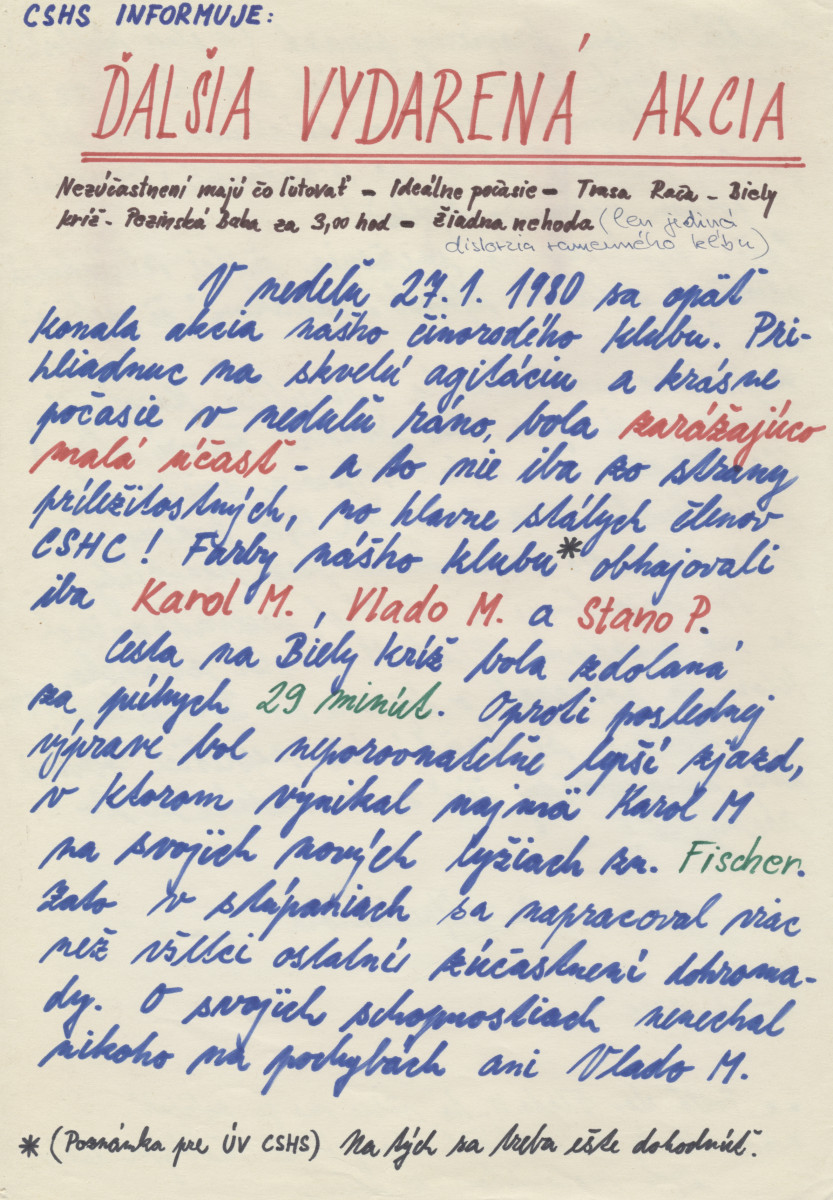 CSHS INFORMUJE:
ĎALŠIA VYDARENÁ AKCIA
Nezúčastnení majú čo ľutovať – Ideálne počasie – Trasa Rača – Biely
kríž – Pezinská Baba za 3,00 hod – žiadna nehoda (len jediná
distorzia ramenného kĺbu)
V nedeľu 27.1. 1980 sa opäť
konala akcia nášho činorodého klubu. Pri-
hliadnuc na skvelú agitáciu a krásne
počasie v nedeľu ráno, bola zarážajúco
malá účasť – a to nie iba zo strany
príležitostných, no hlavne stálych členov
CSHC! Farby nášho klubu* obhajovali
iba Karol M., Vlado M. a Stano P.
Cesta na Biely kríž bola zdolaná
za púhych 29 minút. Oproti poslednej
výprave bol neporovnateľne lepší zjazd,
v ktorom vynikal najmä Karol M
na svojich nových lyžiach zn. Fischer.
Zato v stúpaniach sa napracoval viac
než všetci ostatní zúčastnení dohroma-
dy. O svojich schopnostiach nenechal
nikoho na pochybách ani Vlado M.
* (Poznámka pre ÚV CSHS) Na tých sa treba ešte dohodnúť.